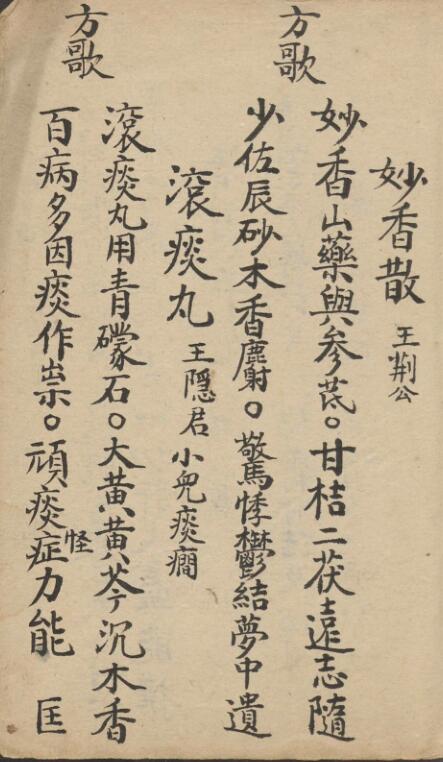 妙香散 王荆公
方歌
妙香山藥與參芪。甘桔二茯遠志隨
少佐辰砂木香麝。驚悸鬱結夢中遺
滾痰丸 王隱君 小兒痰癇
方歌
滾痰丸用青礞石。大黄黄芩沉木香
百病多因痰作祟。頑痰怪症力能匡